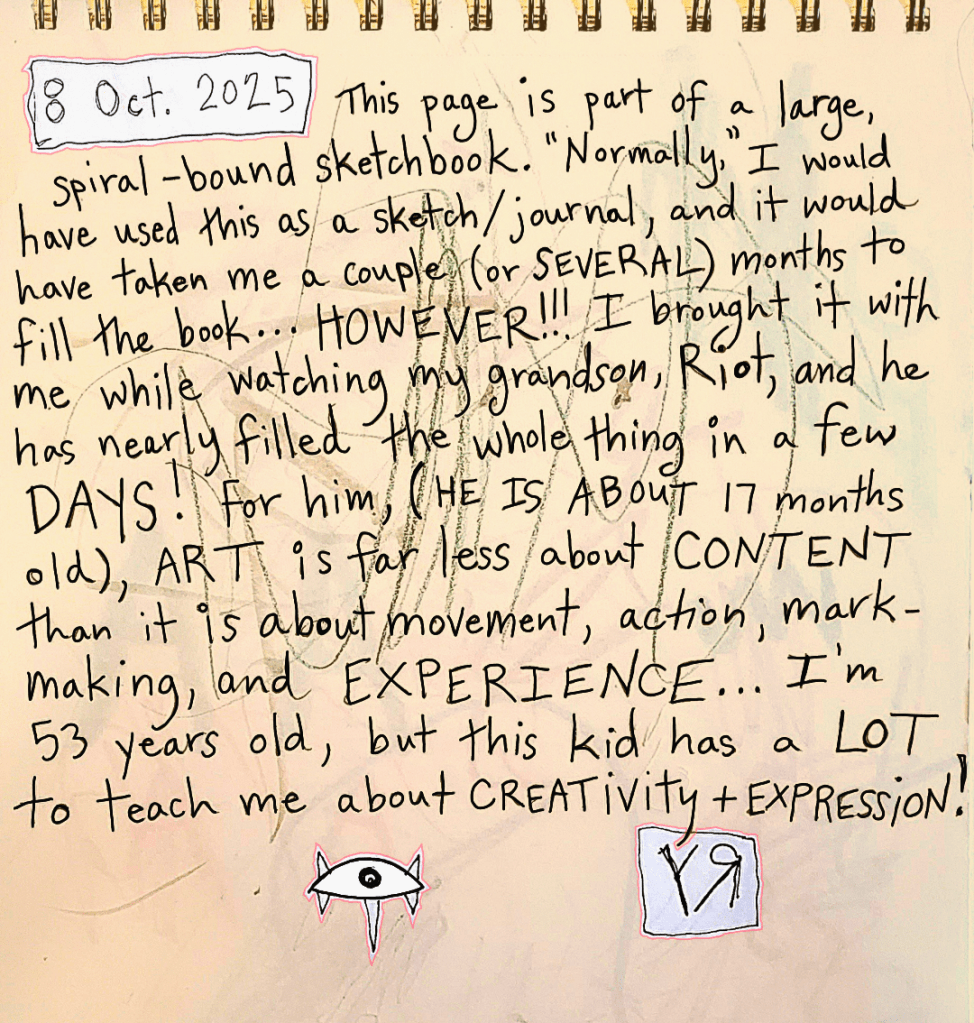 8 Oct. 2025 This page is part of a large,
spiral-bound sketchbook. "Normally," I would
have used this as a sketch/journal, and it would
have taken me a couple (or SEVERAL) months to
fill the book... HOWEVER!!! I brought it with
me while watching my grandson, Riot, and he
has nearly filled the whole thing in a few
DAYS! For him, (HE IS ABOUT 17 months
old), ART is far less about CONTENT
than it is about movement, action, mark-
making, and EXPERIENCE... I'm
53 years old, but this kid has a LOT
to teach me about CREATiVity + EXPRESSiON!